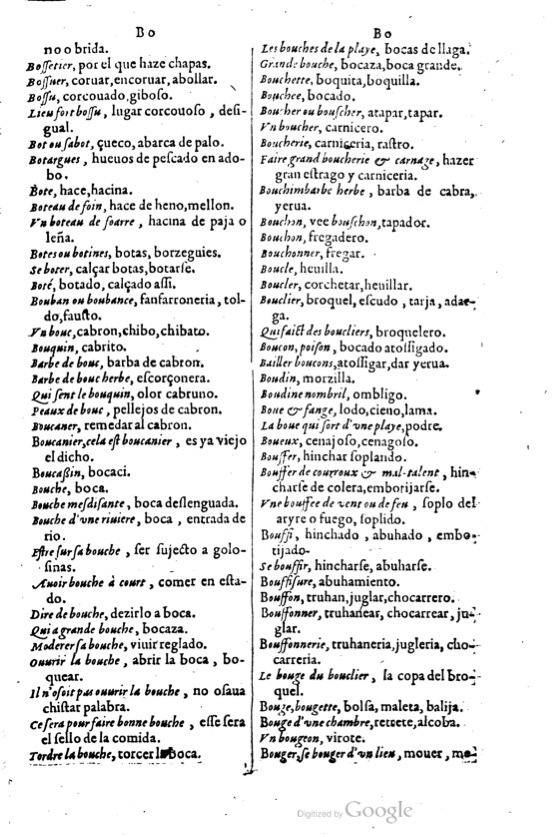 Bo
no o brida.
Boſſetier, por el que haze chapas.
Boſſuer, coruar, encoruar, abollar.
Boſſu, corcouado, giboſo.
Lieu fort boſſu, lugar corcouoſo, deſi-
gual.
Bot ou ſabot, çueco, abarca de palo.
Botargues, hueuos de peſcado en ado-
bo.
Bote, hace, hacina.
Boteau de foin, hace de heno, mellon.
Vn boteau de foarre, hacina de paja o
leña.
Botes ou botines, botas, borzeguies.
Se boter, calçar botas, botarſe.
Boté, botado, calçado aſſi.
Bouban ou boubance, fanfarroneria, tol-
do, fauſto.
Vn bouc, cabron, chibo, chibato.
Bouquin, cabrito.
Barbe de bouc, barba de cabron.
Barbe de bouc herbe, eſcorçonera.
Qui ſent le bouquin, olor cabruno.
Peaux de bouc, pellejos de cabron.
Boucaner, remedar al cabron.
Boucanier, cela eſt boucanier, es ya viejo
el dicho.
Boucaßin, bocaci.
Bouche, boca.
Bouche mesdiſante, boca deſlenguada.
Bouche d'vne riuiere, boca, entrada de
rio.
Eſtre ſur ſa bouche, ſer ſujecto a golo-
ſinas.
Auoir bouche à court, comer en eſta-
do.
Dire de bouche, dezirlo a boca.
Qui a grande bouche, bocaza.
Moderer ſa bouche, viuir reglado.
Ouurir la bouche, abrir la boca, bo-
quear.
Il n'oſoit pas ouurir la bouche, no oſaua
chiſtar palabra.
Ce ſera pour faire bonne bouche, eſſe ſera
el ſello de la comida.
Tordre la bouche, torcer la boca.
Bo
Les bouches de la playe, bocas de llaga.
Grande bouche, bocaza, boca grande.
Bouchette, boquita, boquilla.
Bouchee, bocado.
Boucher ou bouſcher, atapar, tapar.
Vn boucher, carnicero.
Boucherie, carniceria, raſtro.
Faire grand boucherie & carnage, hazer
gran eſtrago y carniceria.
Bouchimbarbe herbe, barba de cabra,
yerua.
Bouchon, vee bouſchon, tapador.
Bouchon, fregadero.
Bouchonner, fregar.
Boucle, heuilla.
Boucler, corchetar, heuillar.
Bouclier, broquel, eſcudo, tarja, adar-
ga.
Qui faict des boucliers, broquelero.
Boucon, poiſon, bocado atoſſigado.
Bailler boucons, atoſſigar, dar yerua.
Boudin, morzilla.
Boudine nombril, ombligo.
Boue & fange, lodo, cieno, lama.
La boue qui ſort d'vne playe, podre.
Boueux, cenajoſo, cenagoſo.
Bouffer, hinchar ſoplando.
Bouffer de courroux & mal-talent, hin-
charſe de colera, emborijarſe.
Vne bouffee de vent ou de feu, ſoplo del
ayre o fuego, ſoplido.
Bouffi, hinchado, abuhado, embo-
tijado.
Se bouffir, hincharſe, abuharſe.
Bouffiſure, abuhamiento.
Bouffon, truhan, juglar, chocarrero.
Bouffonner, truhanear, chocarrear, ju-
glar.
Bouffonnerie, truhaneria, jugleria, cho-
carreria.
Le bouge du bouclier, la copa del bro-
quel.
Bouge, bougette, bolſa, maleta, balija.
Bouge d'vne chambre, retrete, alcoba.
Vn bougeon, virote.
Bouger, ſe bouger d'vn lieu, mouer, me-
Digitized by Google